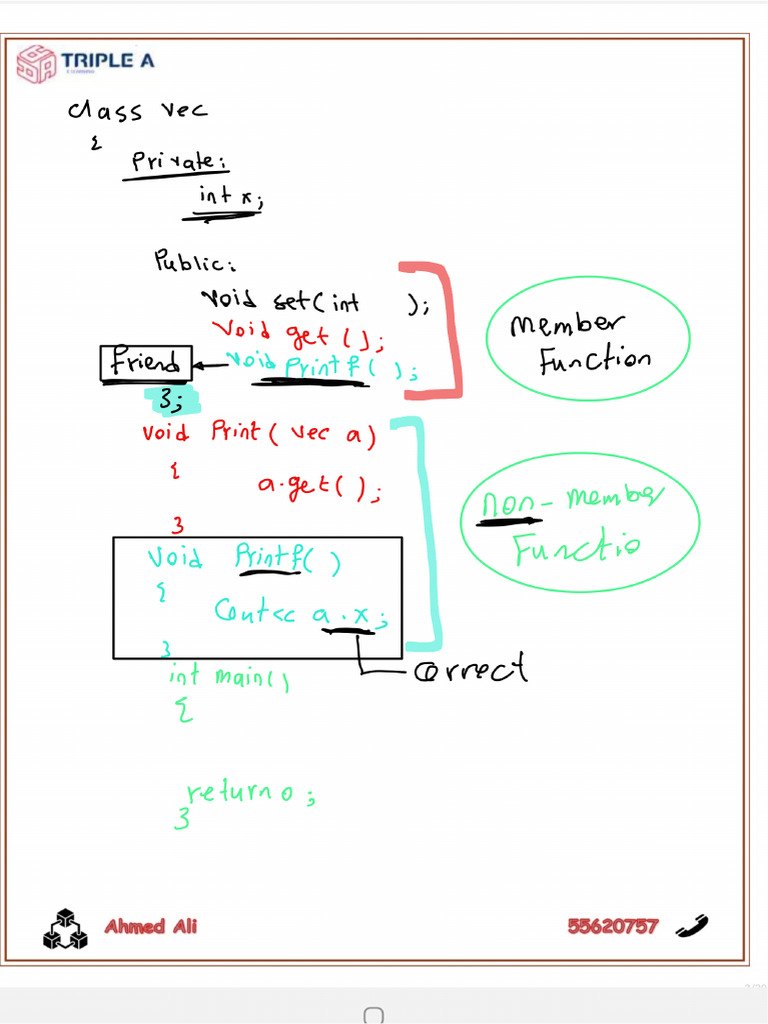 TRIPLE A
E LEARNING
class vec
{
Private:
int x;
Public:
void set(int      );
void get();
Friend void Printf();
};
void Print(vec a)
{
a.get();
}
void Printf()
{
Cout<< a.x;
}
correct
int main()
{
return 0;
}
member
Function
non-member
Functio
Ahmed Ali
55620757